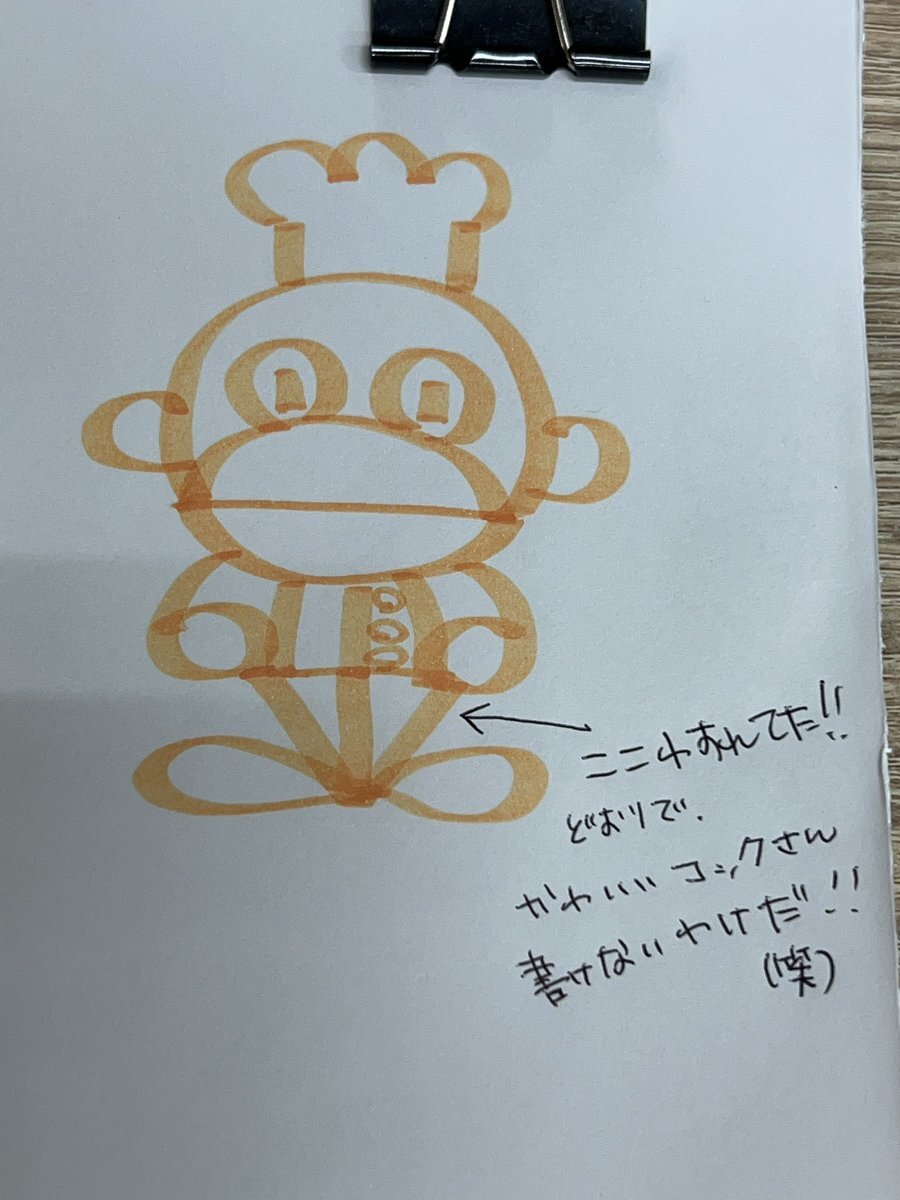 ココわすれてた!!
どおりで、
かわいいコックさん
書けないわけだ!!
(笑)